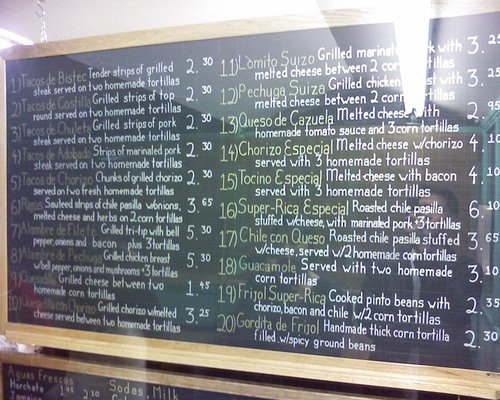 1) Tacos de Bistec Tender strips of grilled 2.30
steak served on two homemade tortillas
2) Tacos de Costilla Grilled strips of top 2.30
round served on two homemade tortillas
3) Tacos de Chuleta Grilled strips of pork 2.30
steak served on two homemade tortillas
4) Tacos de Adobado Strips of marinated pork 2.30
steak served on two homemade tortillas
5) Tacos de Chorizo Chunks of grilled chorizo 2.30
served on two fresh homemade tortillas
6) Rajas Sauteed strips of chile pasilla w/onions, 3.65
melted cheese and herbs on 2 corn tortillas
7) Alambre de Filete Grilled tri-tip with bell 5.30
pepper, onions and bacon plus 3 tortillas
8) Alambre de Pechuga Grilled chicken breast 5.30
w/bell pepper, onions and mushrooms + 3 tortillas
9) Quesadilla Grilled cheese between two 1.45
homemade corn tortillas
10) Quesadilla con Chorizo Grilled chorizo w/melted 3.25
cheese served between two homemade tortillas
11) Lomito Suizo Grilled with 3.25
melted cheese between 2 corn
12) Pechuga Suiza Grilled chicken with 3.25
melted cheese between 2 corn
13) Queso de Cazuela Melted cheese with 2.95
homemade tomato sauce and 3 corn tortillas
14) Chorizo Especial Melted cheese w/chorizo 4.10
served with 3 homemade tortillas
15) Tocino Especial Melted cheese with bacon 4.10
served with 3 homemade tortillas
16) Super-Rica Especial Roasted chile pasilla 6.10
stuffed w/cheese, with marinated pork + 3 tortillas
17) Chile con Queso Roasted chile pasilla stuffed 3.65
w/cheese, served w/2 homemade corn tortillas
18) Guacamole Served with two homemade 3.10
corn tortillas
19) Frijol Super-Rica Cooked pinto beans with 2.35
chorizo, bacon and chile w/2 corn tortillas
20) Gordita de Frijol Handmade thick corn tortilla 2.30
filled w/spicy ground beans
Aguas Frescas
Horchata 1.45 2.10
Jamaica
Sodas, Milk